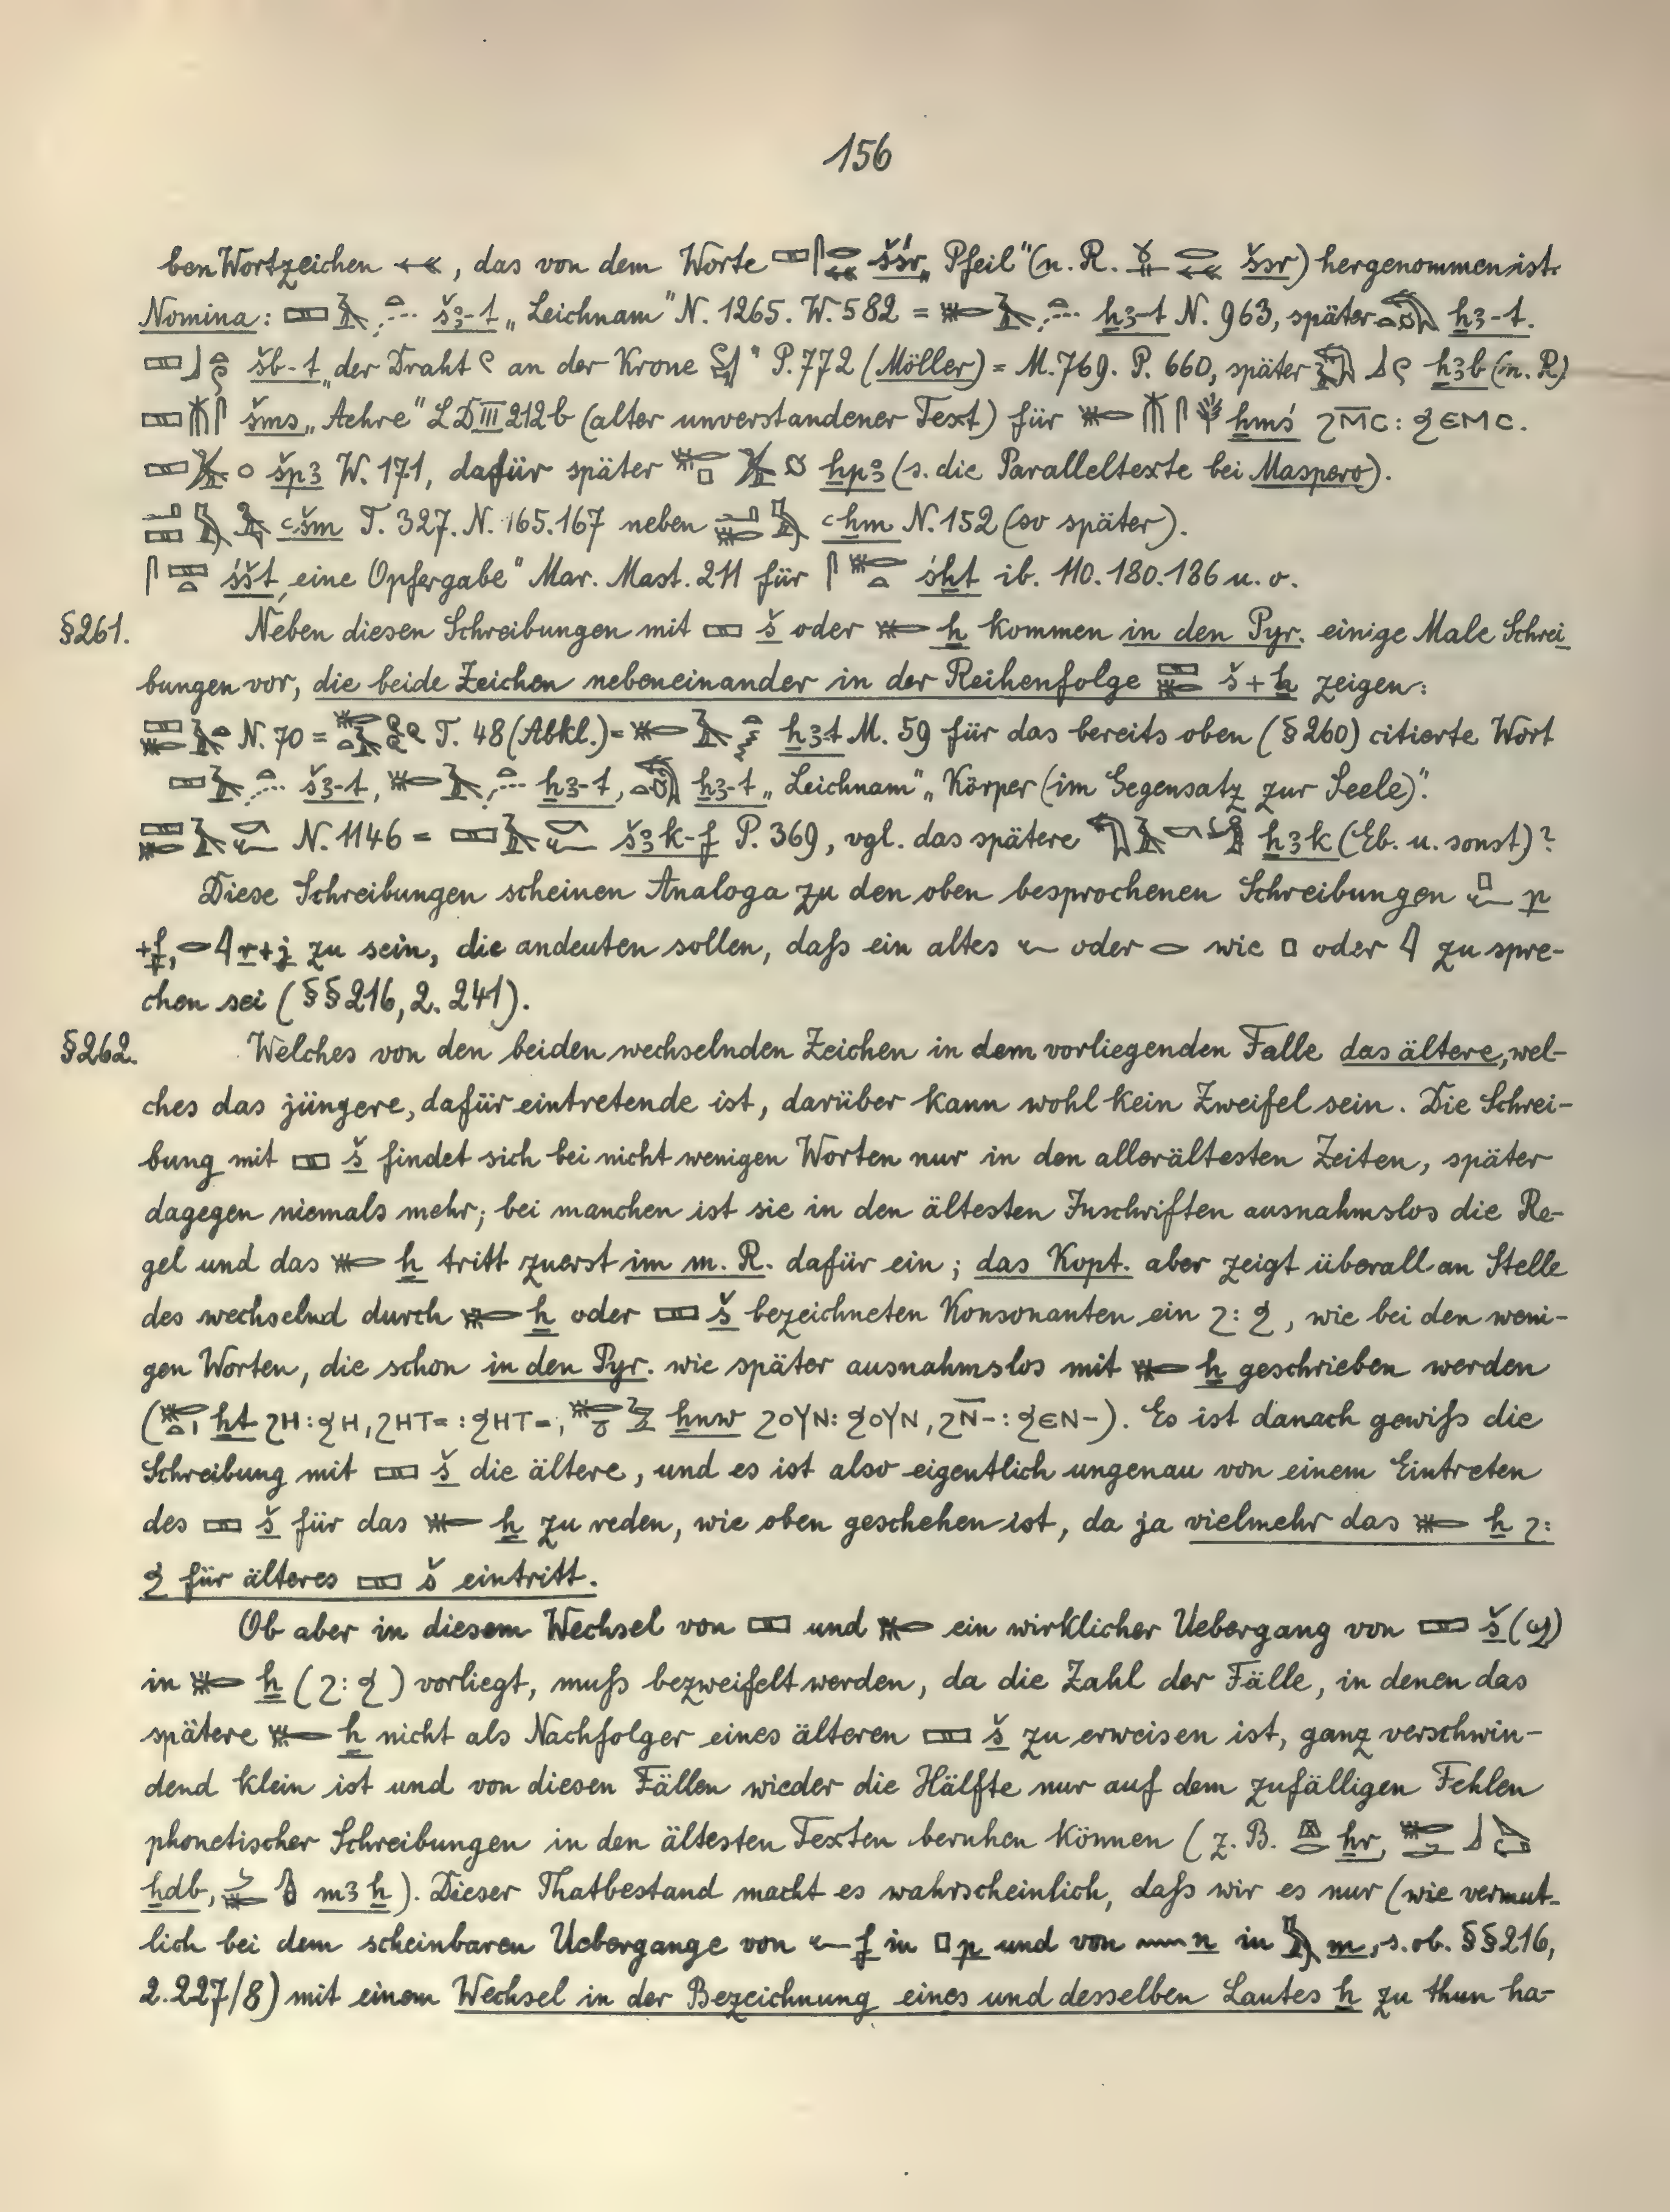 156
ben Wortzeichen , das von dem Worte šśr „Pfeil" (n. R. šsr) hergenommen ist.
Nomina: šꜣ-t „Leichnam" N. 1265. W. 582 = ẖꜣ-t N. 963, später ẖꜣ-t.
šb-t „der Draht an der Krone " P. 772 (Möller) = M. 769. P. 660, später ẖꜣb (n. R.)
šms „Aehre" LD III 212 b (alter unverstandener Text) für ẖmś ϩM̅C : ϧЄMC.
špꜣ W. 171, dafür später ẖpꜣ (s. die Paralleltexte bei Maspero).
ꜥšm T. 327. N. 165. 167 neben ꜥẖm N. 152 (so später).
śšt „eine Opfergabe" Mar. Mast. 211 für śẖt ib. 110. 180. 186 u. o.
§261. Neben diesen Schreibungen mit š oder ẖ kommen in den Pyr. einige Male Schrei-
bungen vor, die beide Zeichen nebeneinander in der Reihenfolge š + ẖ zeigen:
N. 70 = T. 48 (Abkl.) = ẖꜣt M. 59 für das bereits oben (§260) citierte Wort
šꜣ-t, ẖꜣ-t, ẖꜣ-t „Leichnam" „Körper (im Gegensatz zur Seele)".
N. 1146 = šꜣk-f P. 369, vgl. das spätere ẖꜣk (Eb. u. sonst)?
Diese Schreibungen scheinen Analoga zu den oben besprochenen Schreibungen p
+f, r+j zu sein, die andeuten sollen, daſs ein altes oder wie oder zu spre-
chen sei (§§216, 2. 241).
§262. Welches von den beiden wechselnden Zeichen in dem vorliegenden Falle das ältere, wel-
ches das jüngere, dafür eintretende ist, darüber kann wohl kein Zweifel sein. Die Schrei-
bung mit š findet sich bei nicht wenigen Worten nur in den allerältesten Zeiten, später
dagegen niemals mehr; bei manchen ist sie in den ältesten Inschriften ausnahmslos die Re-
gel und das ẖ tritt zuerst im m. R. dafür ein; das Kopt. aber zeigt überall an Stelle
des wechselnd durch ẖ oder š bezeichneten Konsonanten ein ϩ : ϧ, wie bei den weni-
gen Worten, die schon in den Pyr. wie später ausnahmslos mit ẖ geschrieben werden
( ẖt ϩH : ϧH, ϩHT= : ϧHT=, ẖnw ϩOYN : ϧOYN, ϩN̅- : ϧЄN-). Es ist danach gewiſs die
Schreibung mit š die ältere, und es ist also eigentlich ungenau von einem Eintreten
des š für das ẖ zu reden, wie oben geschehen ist, da ja vielmehr das ẖ ϩ :
ϧ für älteres š eintritt.
Ob aber in diesem Wechsel von und ein wirklicher Uebergang von š (ϣ)
in ẖ (ϩ : ϧ) vorliegt, muſs bezweifelt werden, da die Zahl der Fälle, in denen das
spätere ẖ nicht als Nachfolger eines älteren š zu erweisen ist, ganz verschwin-
dend klein ist und von diesen Fällen wieder die Hälfte nur auf dem zufälligen Fehlen
phonetischer Schreibungen in den ältesten Texten beruhen können (z. B. ẖr,
ẖdb, mꜣẖ). Dieser Thatbestand macht es wahrscheinlich, daſs wir es nur (wie vermut-
lich bei dem scheinbaren Uebergange von f in p und von n in m, s. ob. §§216,
2. 227/8) mit einem Wechsel in der Bezeichnung eines und desselben Lautes ẖ zu thun ha-